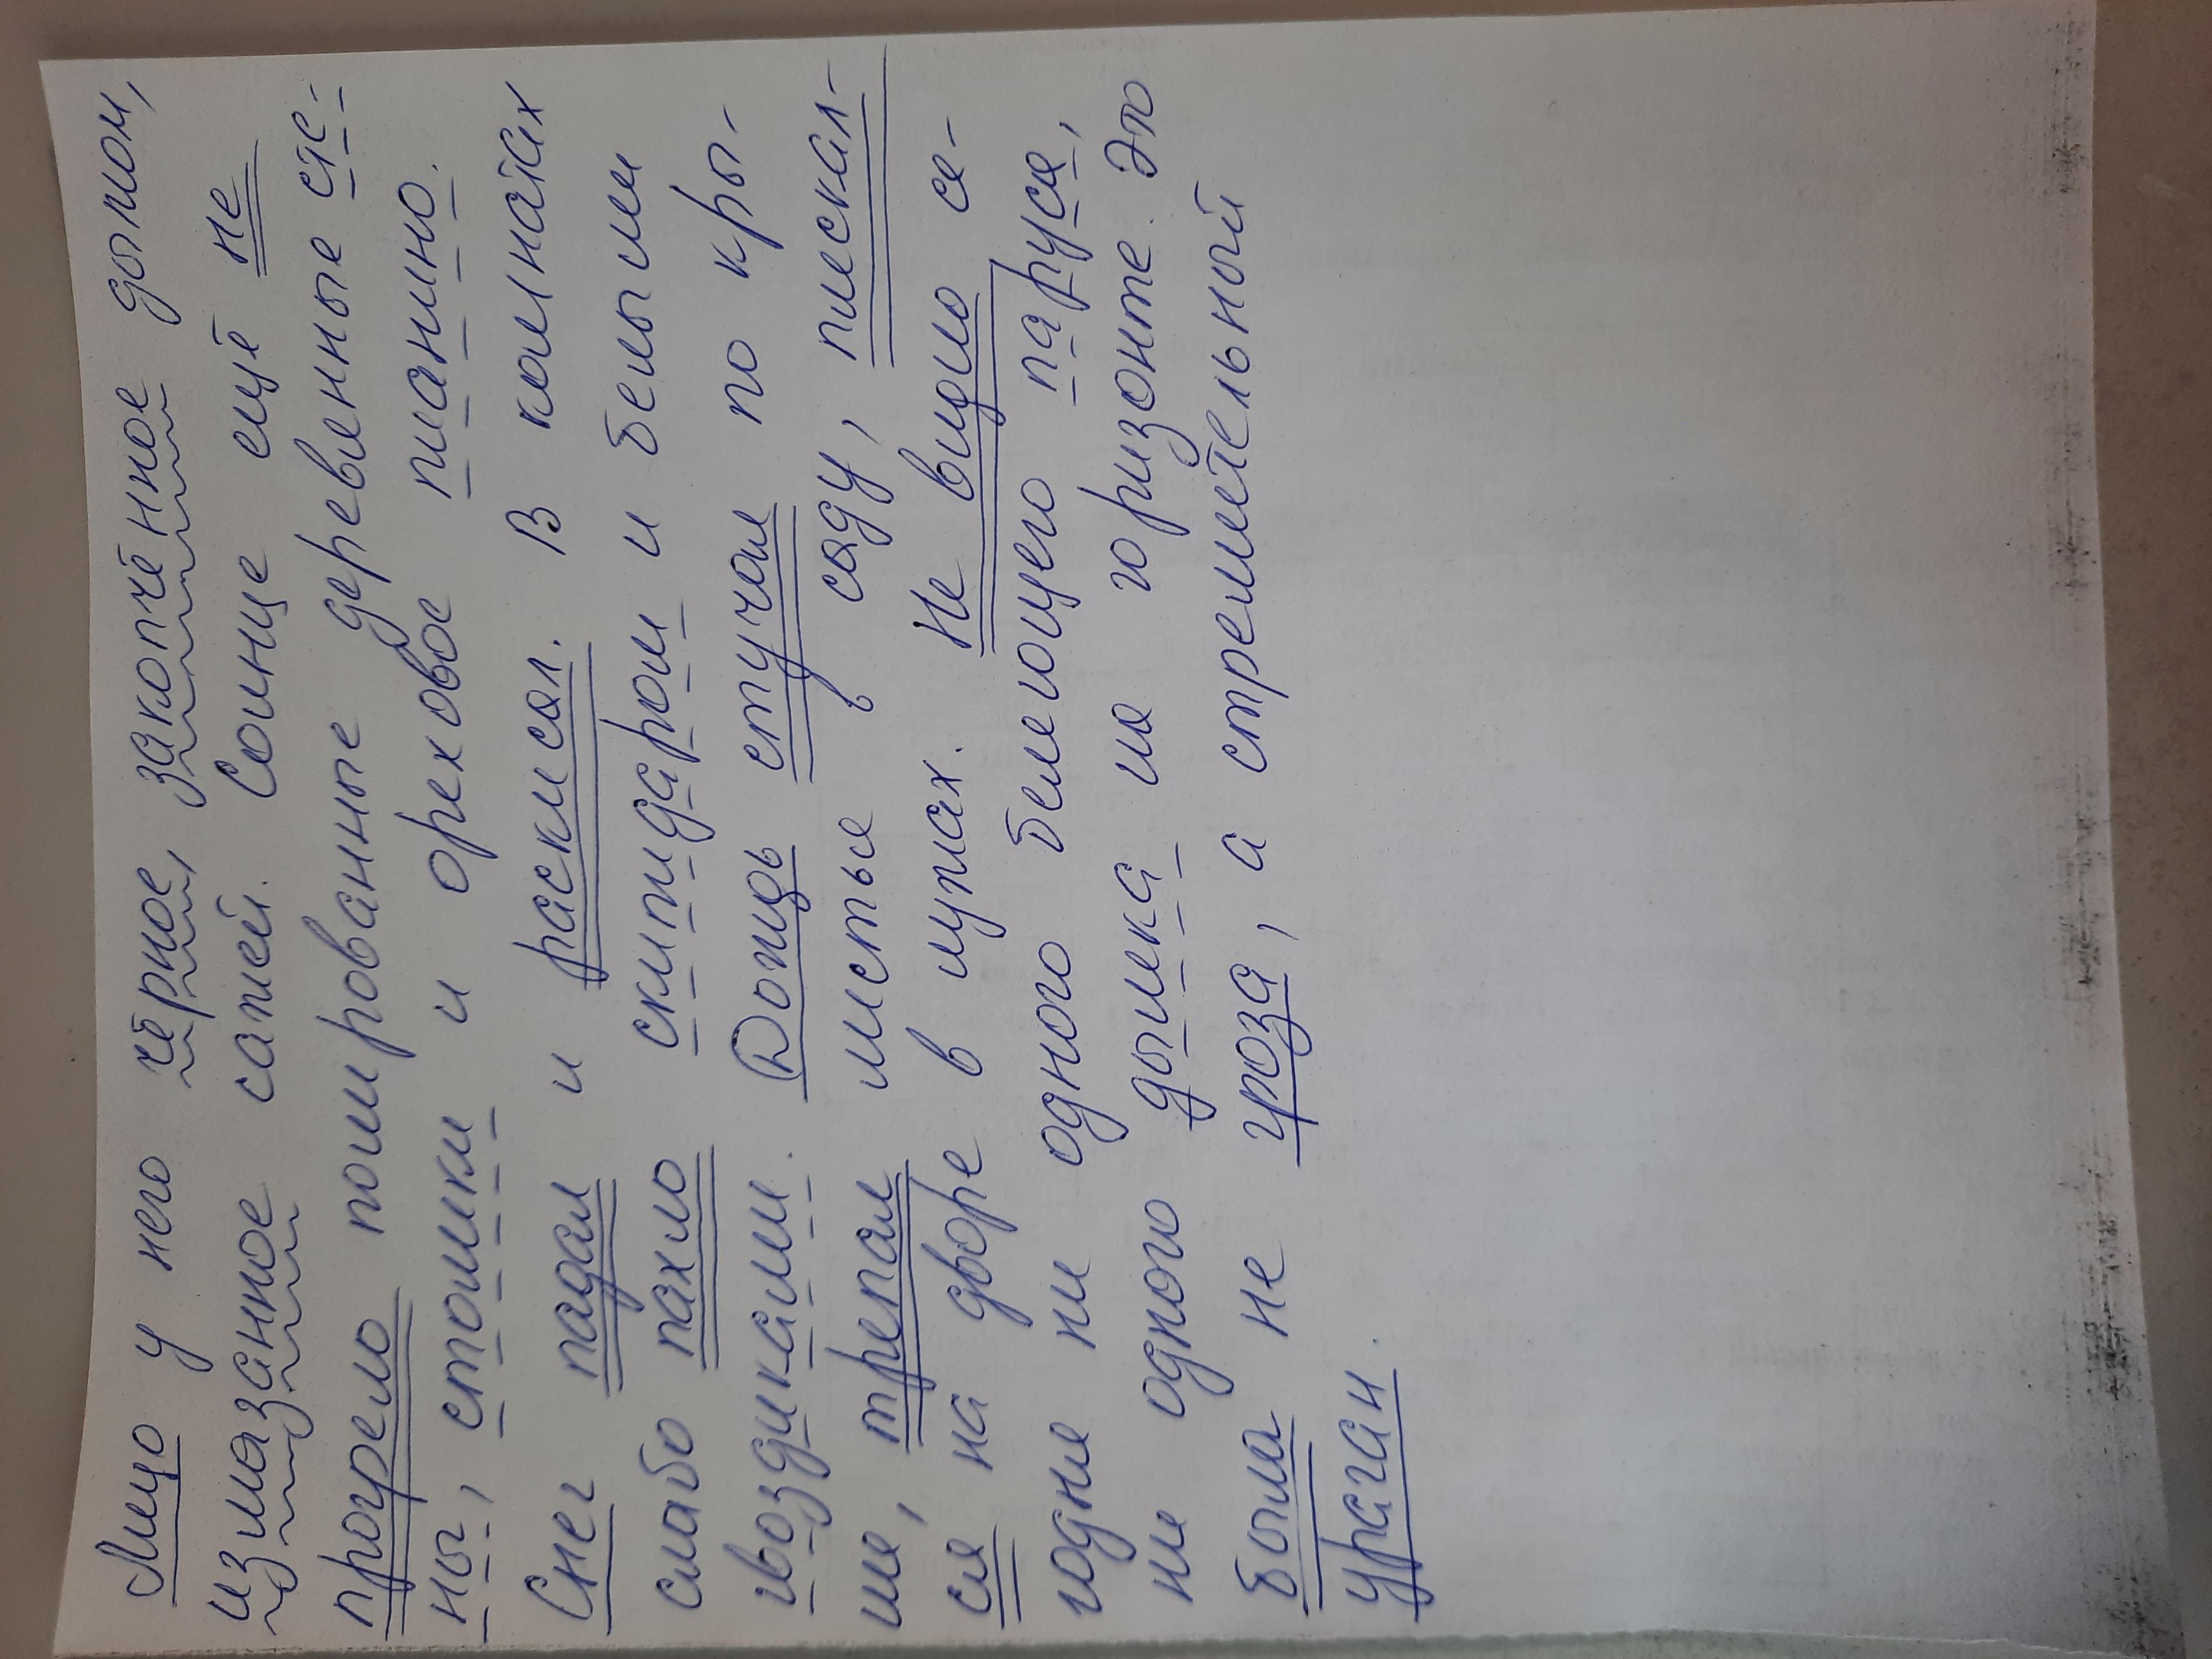 Лицо у него чёрное, закопчённое дымом,
измазанное сажей. Солнце ещё не
прогрело полированные деревенные сте-
ны, столики и ореховое пианино.
Снег падал и раскисал. В комнатах
слабо пахло скипидаром и белыми
гвоздиками. Дождь стучал по кры-
ше, трепал листья в саду, плескал-
ся на дворе в лужах. Не видно се-
годня ни одного белеющего паруса,
ни одного дымка на горизонте. Это
была не гроза, а стремительный
ураган.